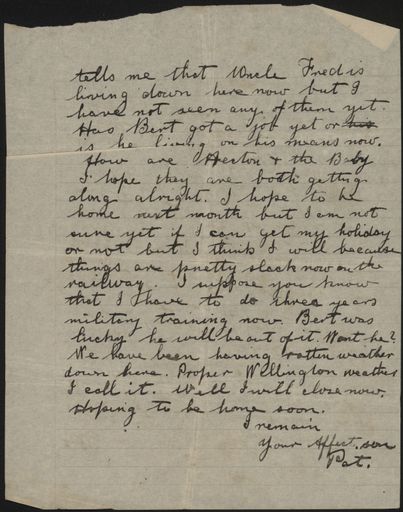 tells me that Uncle Fred is
living down here now but I
have not seen any of them yet.
Has Bert got a job yet or his
is he living on his means now.
How are Hector & the Baby
I hope they are both getting
along alright. I hope to be
home next month but I am not
sure yet if I can get my holiday
or not but I think I will because
things are pretty slack now on the
railway. I suppose you know
that I have to do three years
military training now. Bert was
lucky he will be out of it. Wont he?
We have been having rotten weather
down here. Proper Wellington weather
I call it. Well I will close now.
Hoping to be home soon.
I remain
Your Affect. son
Pat.